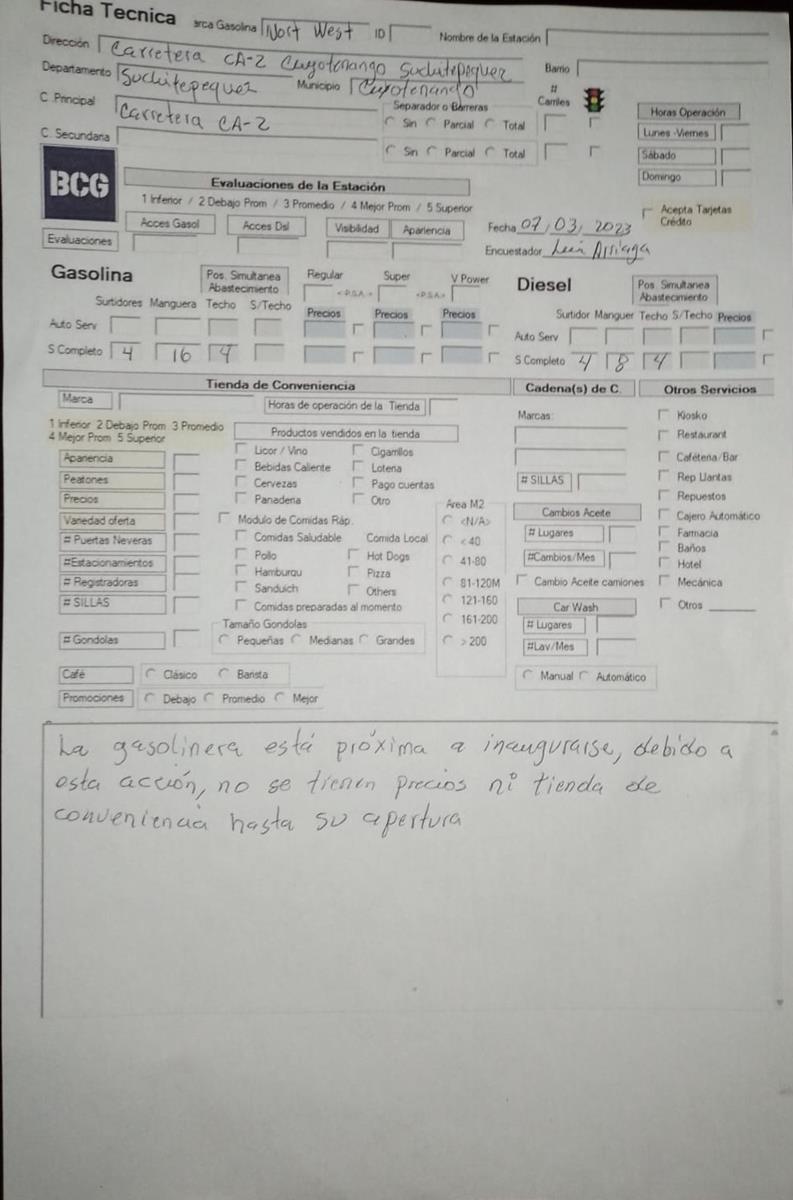 Ficha Tecnica
arca Gasolina Nort West ID Nombre de la Estación
Dirección Carretera CA-2 Cuyotenango Suchitepequez Barrio
Departamento Suchitepequez Municipio Cuyotenando
C. Principal Carretera CA-2 Separador o Barreras # Carriles Horas Operación
Sin Parcial Total Lunes -Viernes
C. Secundaria Sin Parcial Total Sábado
Domingo
BCG
Evaluaciones de la Estación
1 Inferior / 2 Debajo Prom / 3 Promedio / 4 Mejor Prom / 5 Superior
Acepta Tarjetas Crédito
Acces Gasol Acces Dsl Visibilidad Apariencia Fecha 07/03/2023
Evaluaciones Encuestador Arriaga
Gasolina Pos. Simultanea Abastecimiento Regular Super V Power Diesel Pos. Simultanea Abastecimiento
<P.S.A.> <P.S.A.>
Surtidores Manguera Techo S/Techo Precios Precios Precios Surtidor Manguer Techo S/Techo Precios
Auto Serv Auto Serv
S Completo 4 16 4 S Completo 4 8 4
Tienda de Conveniencia Cadena(s) de C. Otros Servicios
Marca Horas de operación de la Tienda Marcas: Kiosko
1 Inferior 2 Debajo Prom 3 Promedio
4 Mejor Prom 5 Superior
Productos vendidos en la tienda Restaurant
Apariencia Licor / Vino Cigarrillos Cafétería/Bar
Peatones Bebidas Caliente Lotería # SILLAS Rep Llantas
Precios Cervezas Pago cuentas Repuestos
Panaderia Otro Area M2 Cambios Aceite Cajero Automático
Variedad oferta Modulo de Comidas Ráp. <N/A> # Lugares Farmacia
# Puertas Neveras Comidas Saludable Comida Local < 40 Baños
#Estacionamientos Pollo Hot Dogs 41-80 #Cambios/Mes Hotel
# Registradoras Hamburqu Pizza 81-120M Cambio Aceite camiones Mecánica
# SILLAS Sanduich Others 121-160 Car Wash Otros
Comidas preparadas al momento 161-200 # Lugares
Tamaño Gondolas
# Gondolas Pequeñas Medianas Grandes > 200 #Lav/Mes
Café Clásico Barista Manual Automático
Promociones Debajo Promedio Mejor
La gasolinera está próxima a inaugurarse, debido a
esta acción, no se tienen precios ni tienda de
conveniencia hasta su apertura